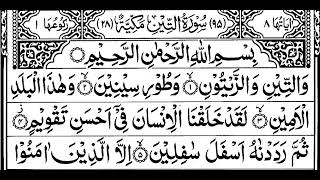 اٰيَاتُهَا ٨ (٩٥) سُوْرَةُ التِّيْنِ مَكِّيَّةٌ (٢٨) رُكُوْعُهَا ١
بِسْمِ اللّٰهِ الرَّحْمٰنِ الرَّحِيْمِ
وَالتِّيْنِ وَالزَّيْتُوْنِ ۝١ وَطُوْرِ سِيْنِيْنَ ۝٢ وَهٰذَا الْبَلَدِ
الْاَمِيْنِ ۝٣ لَقَدْ خَلَقْنَا الْاِنْسَانَ فِيْۤ اَحْسَنِ تَقْوِيْمٍ ۝٤
ثُمَّ رَدَدْنٰهُ اَسْفَلَ سٰفِلِيْنَ ۝٥ اِلَّا الَّذِيْنَ اٰمَنُوْا